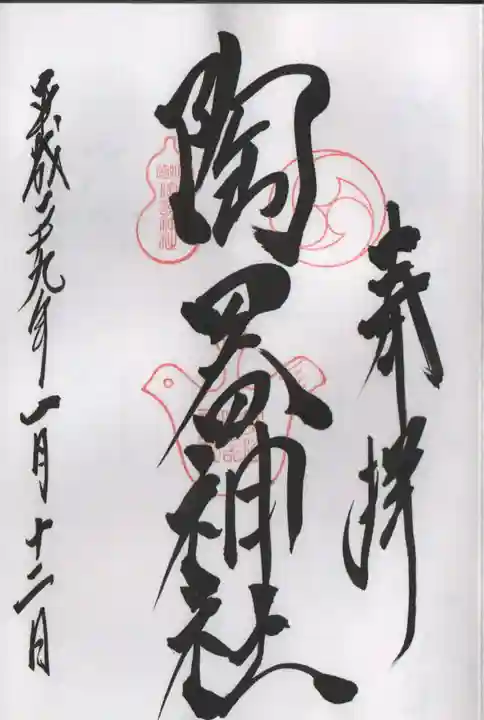 奉拝
陶器神社
平成二十九年一月十二日